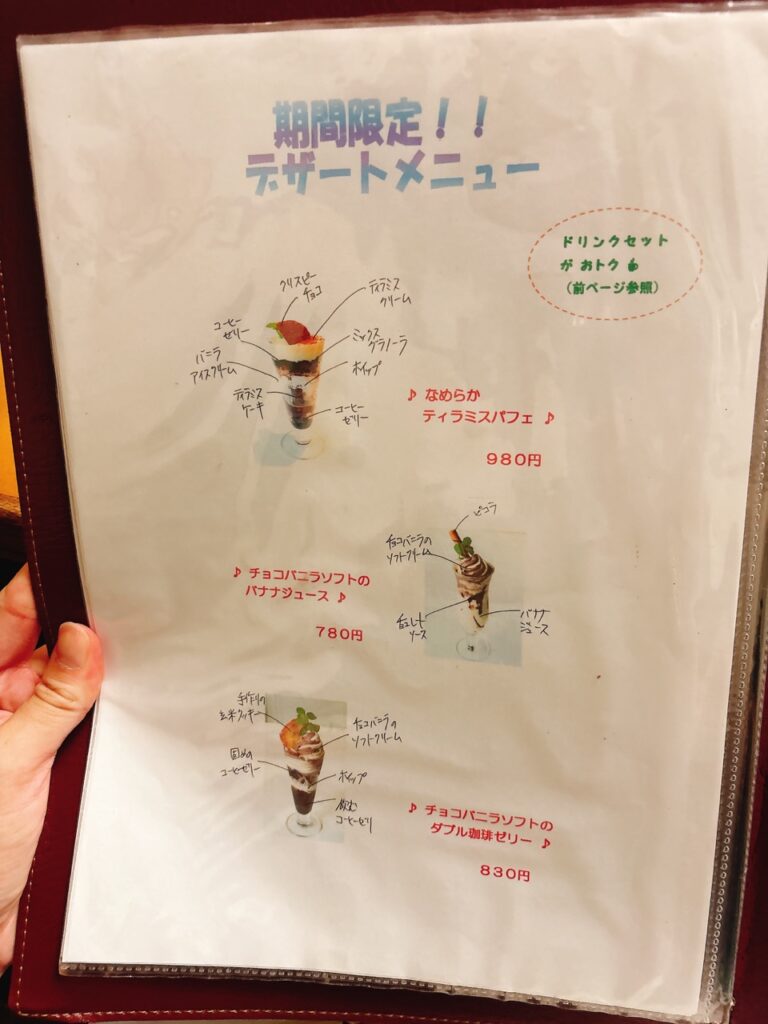 期間限定！！
デザートメニュー
ドリンクセット
が おトク
（前ページ参照）
クリスピー
チョコ
ティラミス
クリーム
コーヒー
ゼリー
ミックス
グラノーラ
バニラ
アイスクリーム
ホイップ
ティラミス
ケーキ
コーヒー
ゼリー
♪ なめらか
ティラミスパフェ ♪
980円
ピコラ
チョコバニラの
ソフトクリーム
♪ チョコバニラソフトの
バナナジュース ♪
780円
チョコレート
ソース
バナナ
ジュース
手作りの
玄米クッキー
チョコバニラの
ソフトクリーム
固めの
コーヒーゼリー
ホイップ
飲む
コーヒーゼリー
♪ チョコバニラソフトの
ダブル珈琲ゼリー ♪
830円